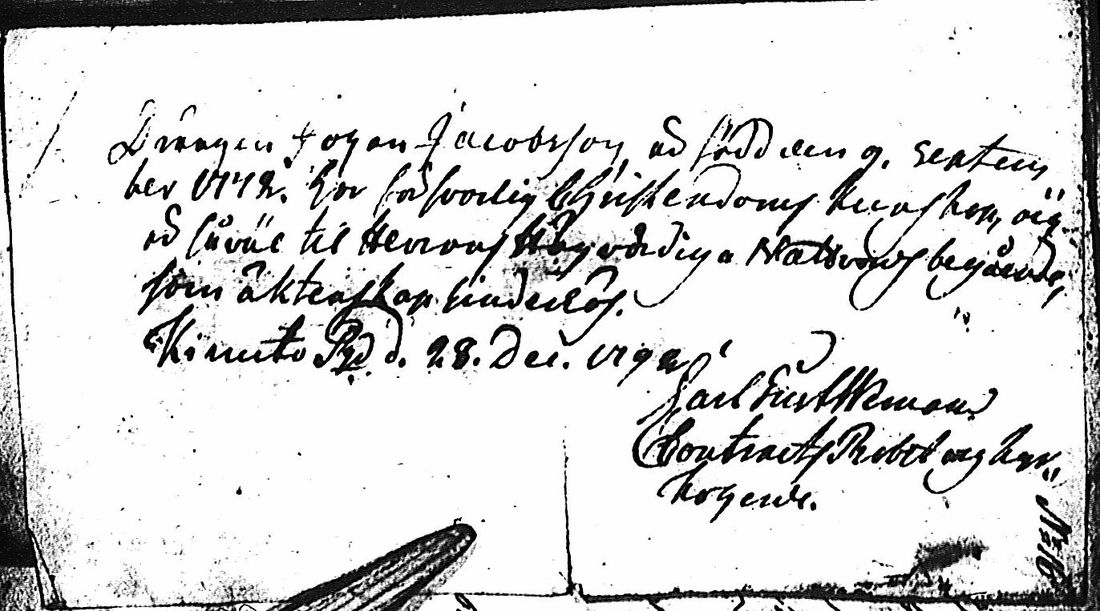 Drängen Johan Jacobsson, är född den 9. Septem
ber 1772. har försvarlig Christendoms kunskap, och
är såväl til Herrans Högvördiga Nattvards begående,
som äktenskap hinderlös.
Kimito Pgd d. 28. Dec. 1792
Carl
Contracts Probst och Kyr
koherde.
No 16